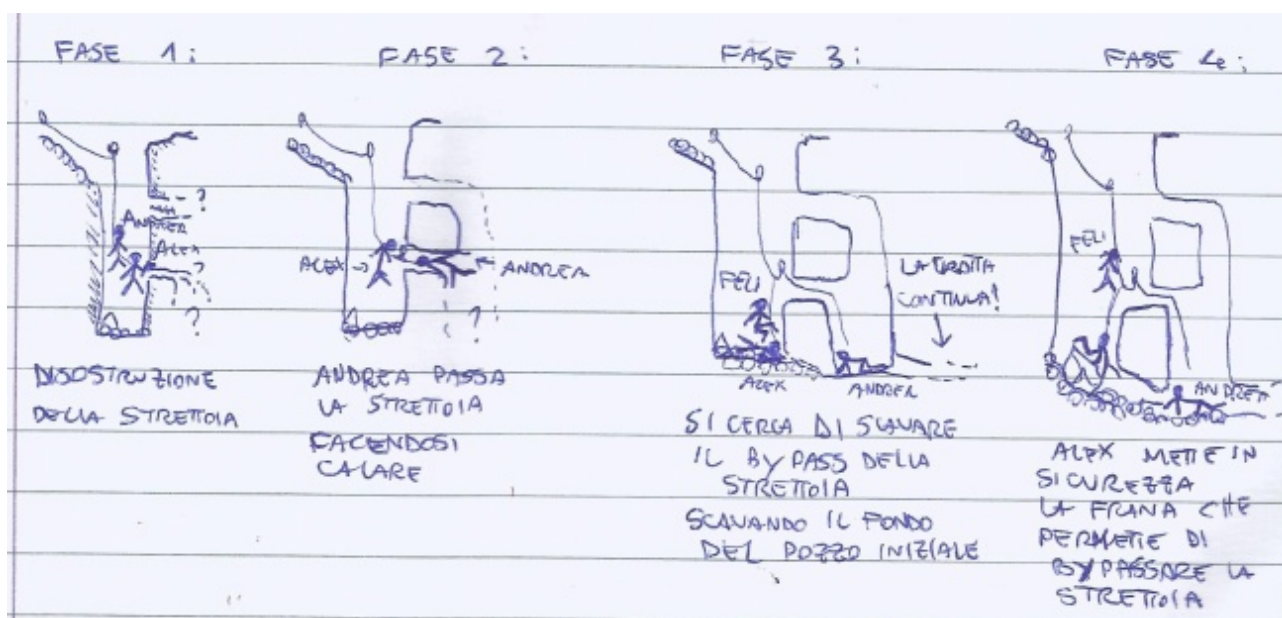 FASE 1:
FASE 2:
FASE 3:
FASE 4:
?
ANDREA
ALEX
?
?
DISOSTRUZIONE
DELLA STRETTOIA
ALEX
ANDREA
?
ANDREA PASSA
LA STRETTOIA
FACENDOSI
CALARE
FELI
LA GROTTA
CONTINUA!
ALEX
ANDREA
SI CERCA DI SCAVARE
IL BY PASS DELLA
STRETTOIA
SCAVANDO IL FONDO
DEL POZZO INIZIALE
FELI
ANDREA
ALEX METTE IN
SICUREZZA
LA FRANA CHE
PERMETTE DI
BYPASSARE LA
STRETTOIA